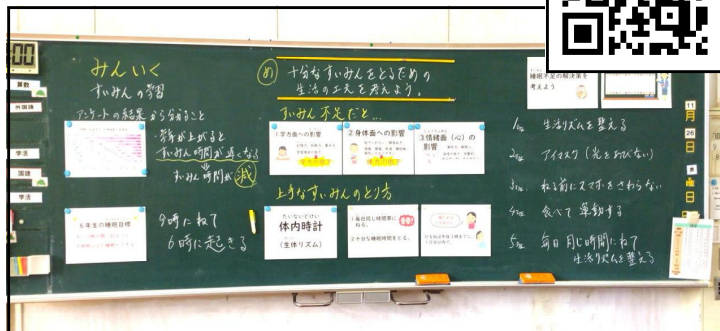 みんいく
すいみんの学習
アンケートの結果から分かること
学年が上がると
すいみん時間が遅くなる
すいみん時間が減
6年生の睡眠目標
9時にねて
6時に起きる
め 十分なすいみんをとるための
生活の工夫を考えよう。
すいみん不足だと…
1学力面への影響
2身体面への影響
3情緒面（心）の
影響
上手なすいみんのとり方
たいないどけい
体内時計
（生体リズム）
1毎日同じ時間帯に
ねる。
2十分な睡眠時間をとる。
睡眠不足の解決策を
考えよう
1 生活リズムを整える
2 アイマスク（光をあびない）
3 ねる前にスマホをさわらない
4 食べて運動する
5 毎日同じ時間にねて
生活リズムを整える
算数
外国語
学活
国語
学活
11
月
26
日
水
曜
日